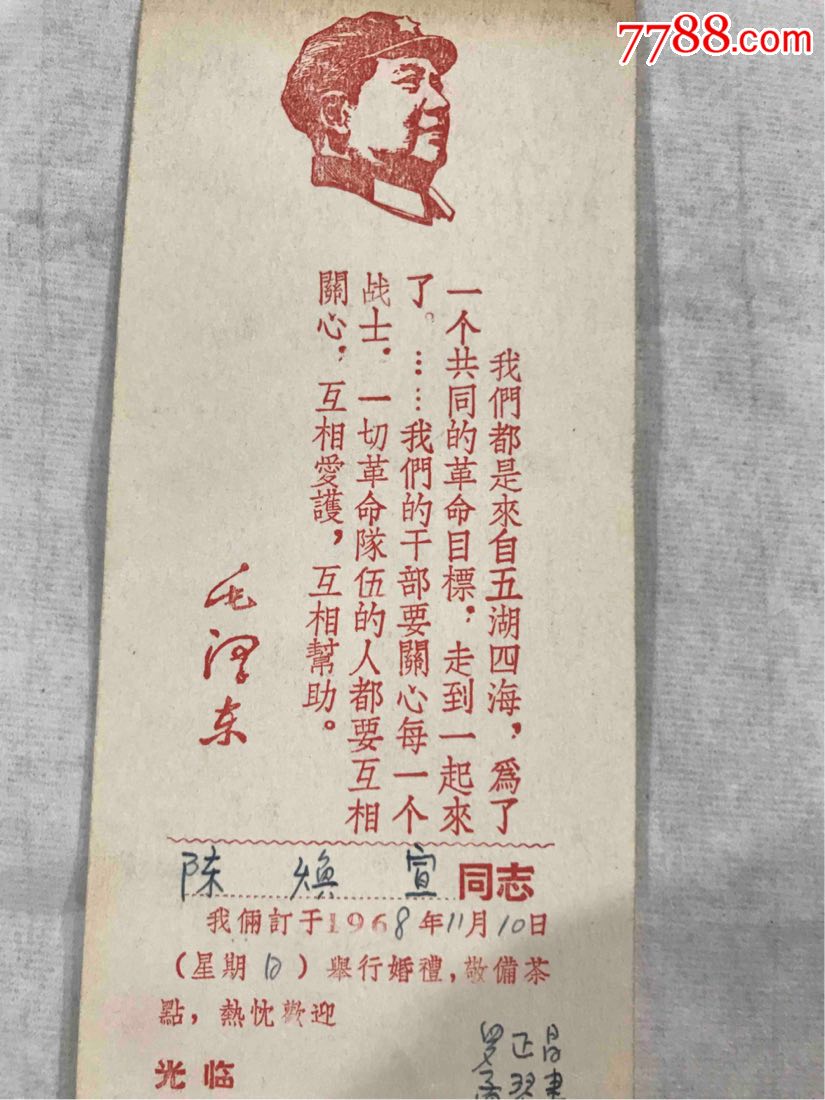 7788.com
我們都是來自五湖四海，爲了
一个共同的革命目標，走到一起來
了。……我們的干部要關心每一个
战士，一切革命隊伍的人都要互相
關心，互相愛護，互相幫助。
毛澤东
陈焕宣同志
我倆訂于1968年11月10日
（星期日）舉行婚禮，敬備茶
點，熱忱歡迎
光临
正昌